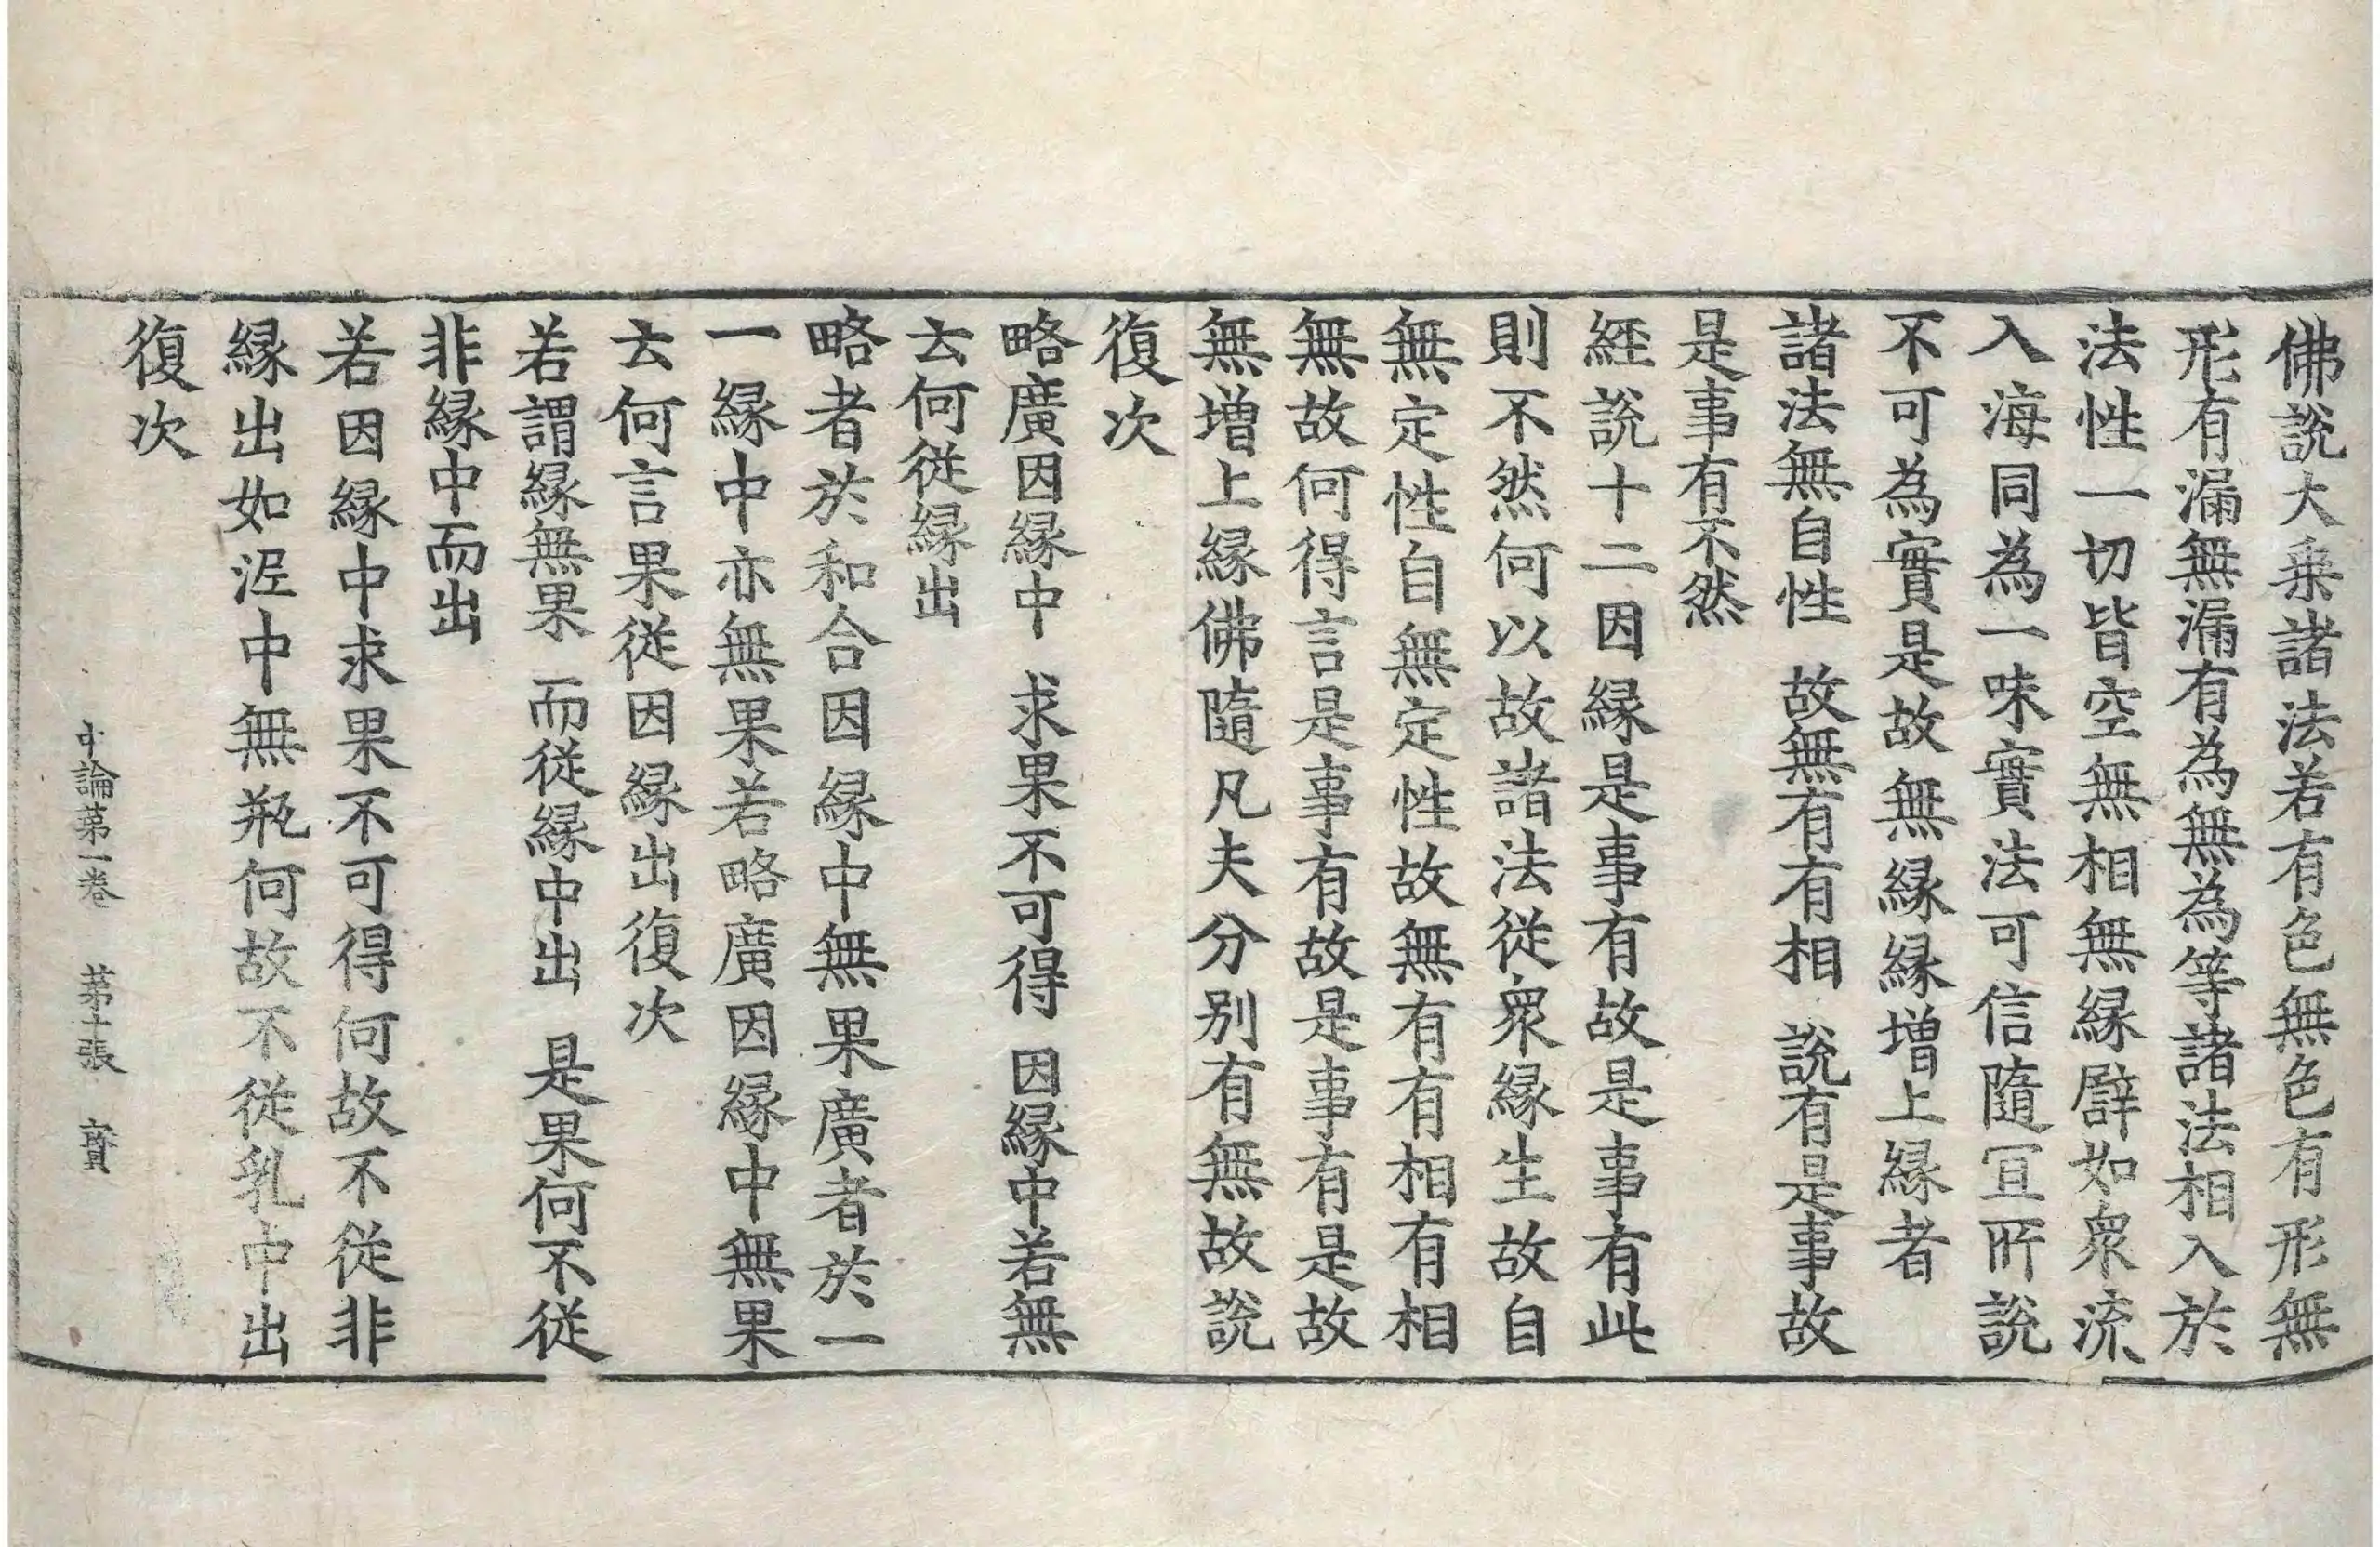 佛說大乗諸法若有色無色有形無
形有漏無漏有為無為等諸法相入於
法性一切皆空無相無縁譬如衆流
入海同為一味實法可信隨冝所說
不可為實是故無縁縁増上縁者
諸法無自性　故無有有相　說有是事故
是事有不然
經說十二因縁是事有故是事有此
則不然何以故諸法從衆縁生故自
無定性自無定性故無有有相有相
無故何得言是事有故是事有是故
無増上縁佛隨凡夫分别有無故說
復次
略廣因縁中　求果不可得　因縁中若無
云何從縁出
略者於和合因縁中無果廣者於一
一縁中亦無果若略廣因縁中無果
云何言果從因縁出復次
若謂縁無果　而從縁中出　是果何不從
非縁中而出
若因縁中求果不可得何故不從非
縁出如泥中無瓶何故不從乳中出
復次
中論第一卷　第十張　寳